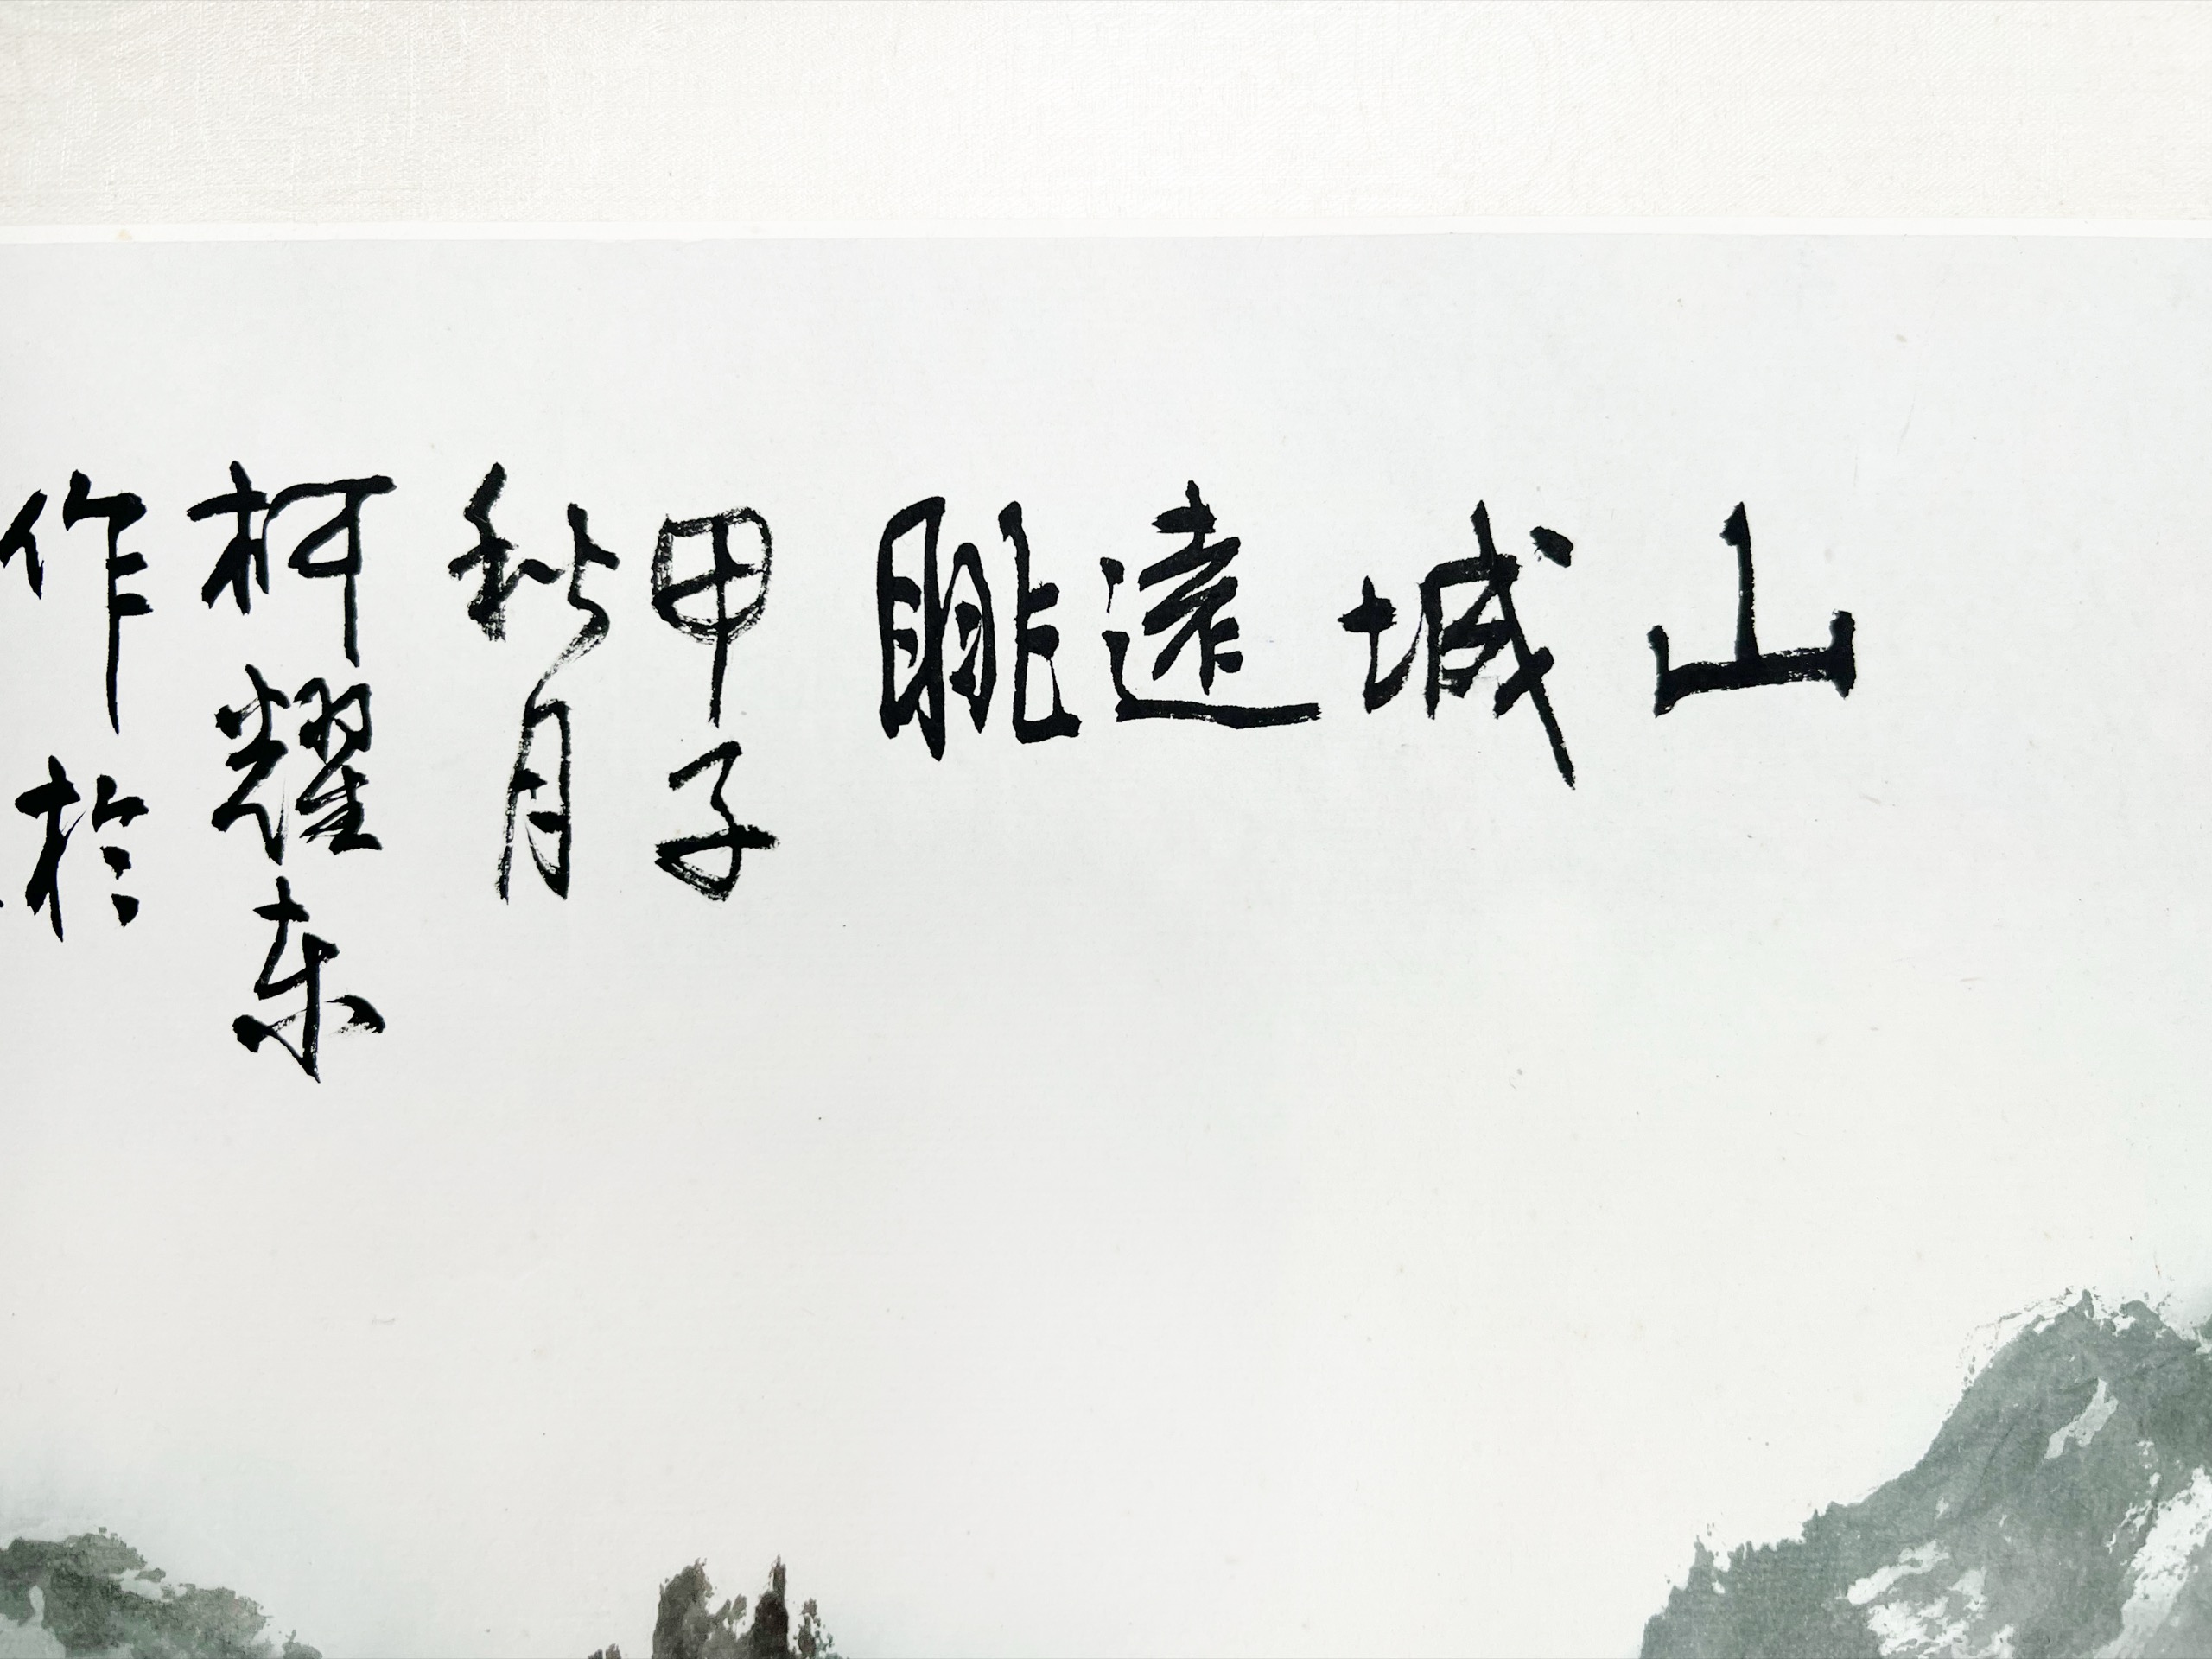 山城遠眺
甲子
秋月
柯耀东
作於